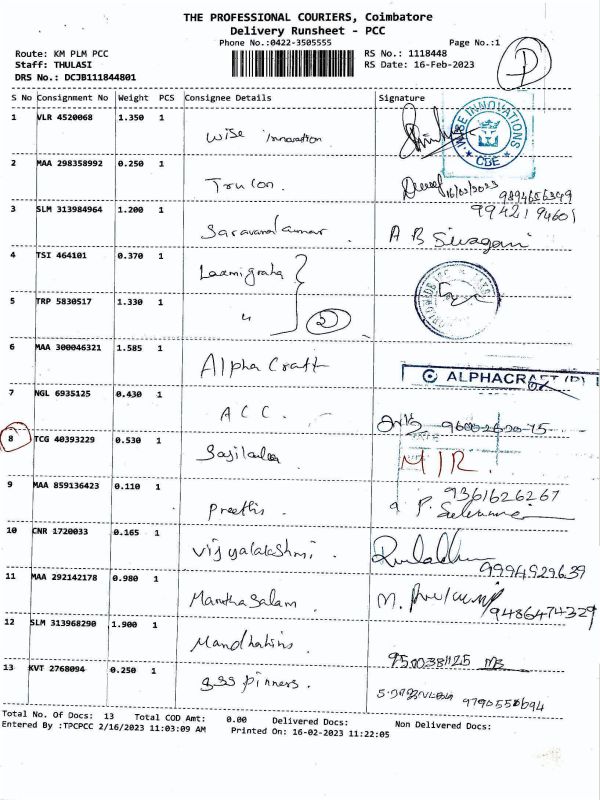 THE PROFESSIONAL COURIERS, Coimbatore
Delivery Runsheet - PCC
Phone No.:0422-3505555 Page No.:1
Route: KM PLM PCC RS No.: 1118448
Staff: THULASI RS Date: 16-Feb-2023
DRS No.: DCJB111844801
S No Consignment No Weight PCS Consignee Details Signature
1 VLR 4520068 1.350 1 Wise innovation WISE INNOVATIONS CBE
2 MAA 298358992 0.250 1 Trucon. 16/02/2023 9894656349
3 SLM 313984964 1.200 1 Saravanakumar 9942194601
A B Sivagami
4 TSI 464101 0.370 1 Laxmigraha
5 TRP 5830517 1.330 1 " 2
6 MAA 300046321 1.585 1 Alpha Craft ALPHACRAFT (P)
7 NGL 6935125 0.430 1 ACC.
8 TCG 40393229 0.530 1 MIR.
9 MAA 859136423 0.110 1 Preethis 9361626267
10 CNR 1720033 0.165 1 Vijyalalakshmi. 9994929639
11 MAA 292142178 0.980 1 Manthasalam. M. 9486474329
12 SLM 313968290 1.900 1
13 KVT 2768094 0.250 1 gss pinners. 9790556694
Total No. Of Docs: 13 Total COD Amt: 0.00 Delivered Docs: Non Delivered Docs:
Entered By :TPCPCC 2/16/2023 11:03:09 AM Printed On: 16-02-2023 11:22:05